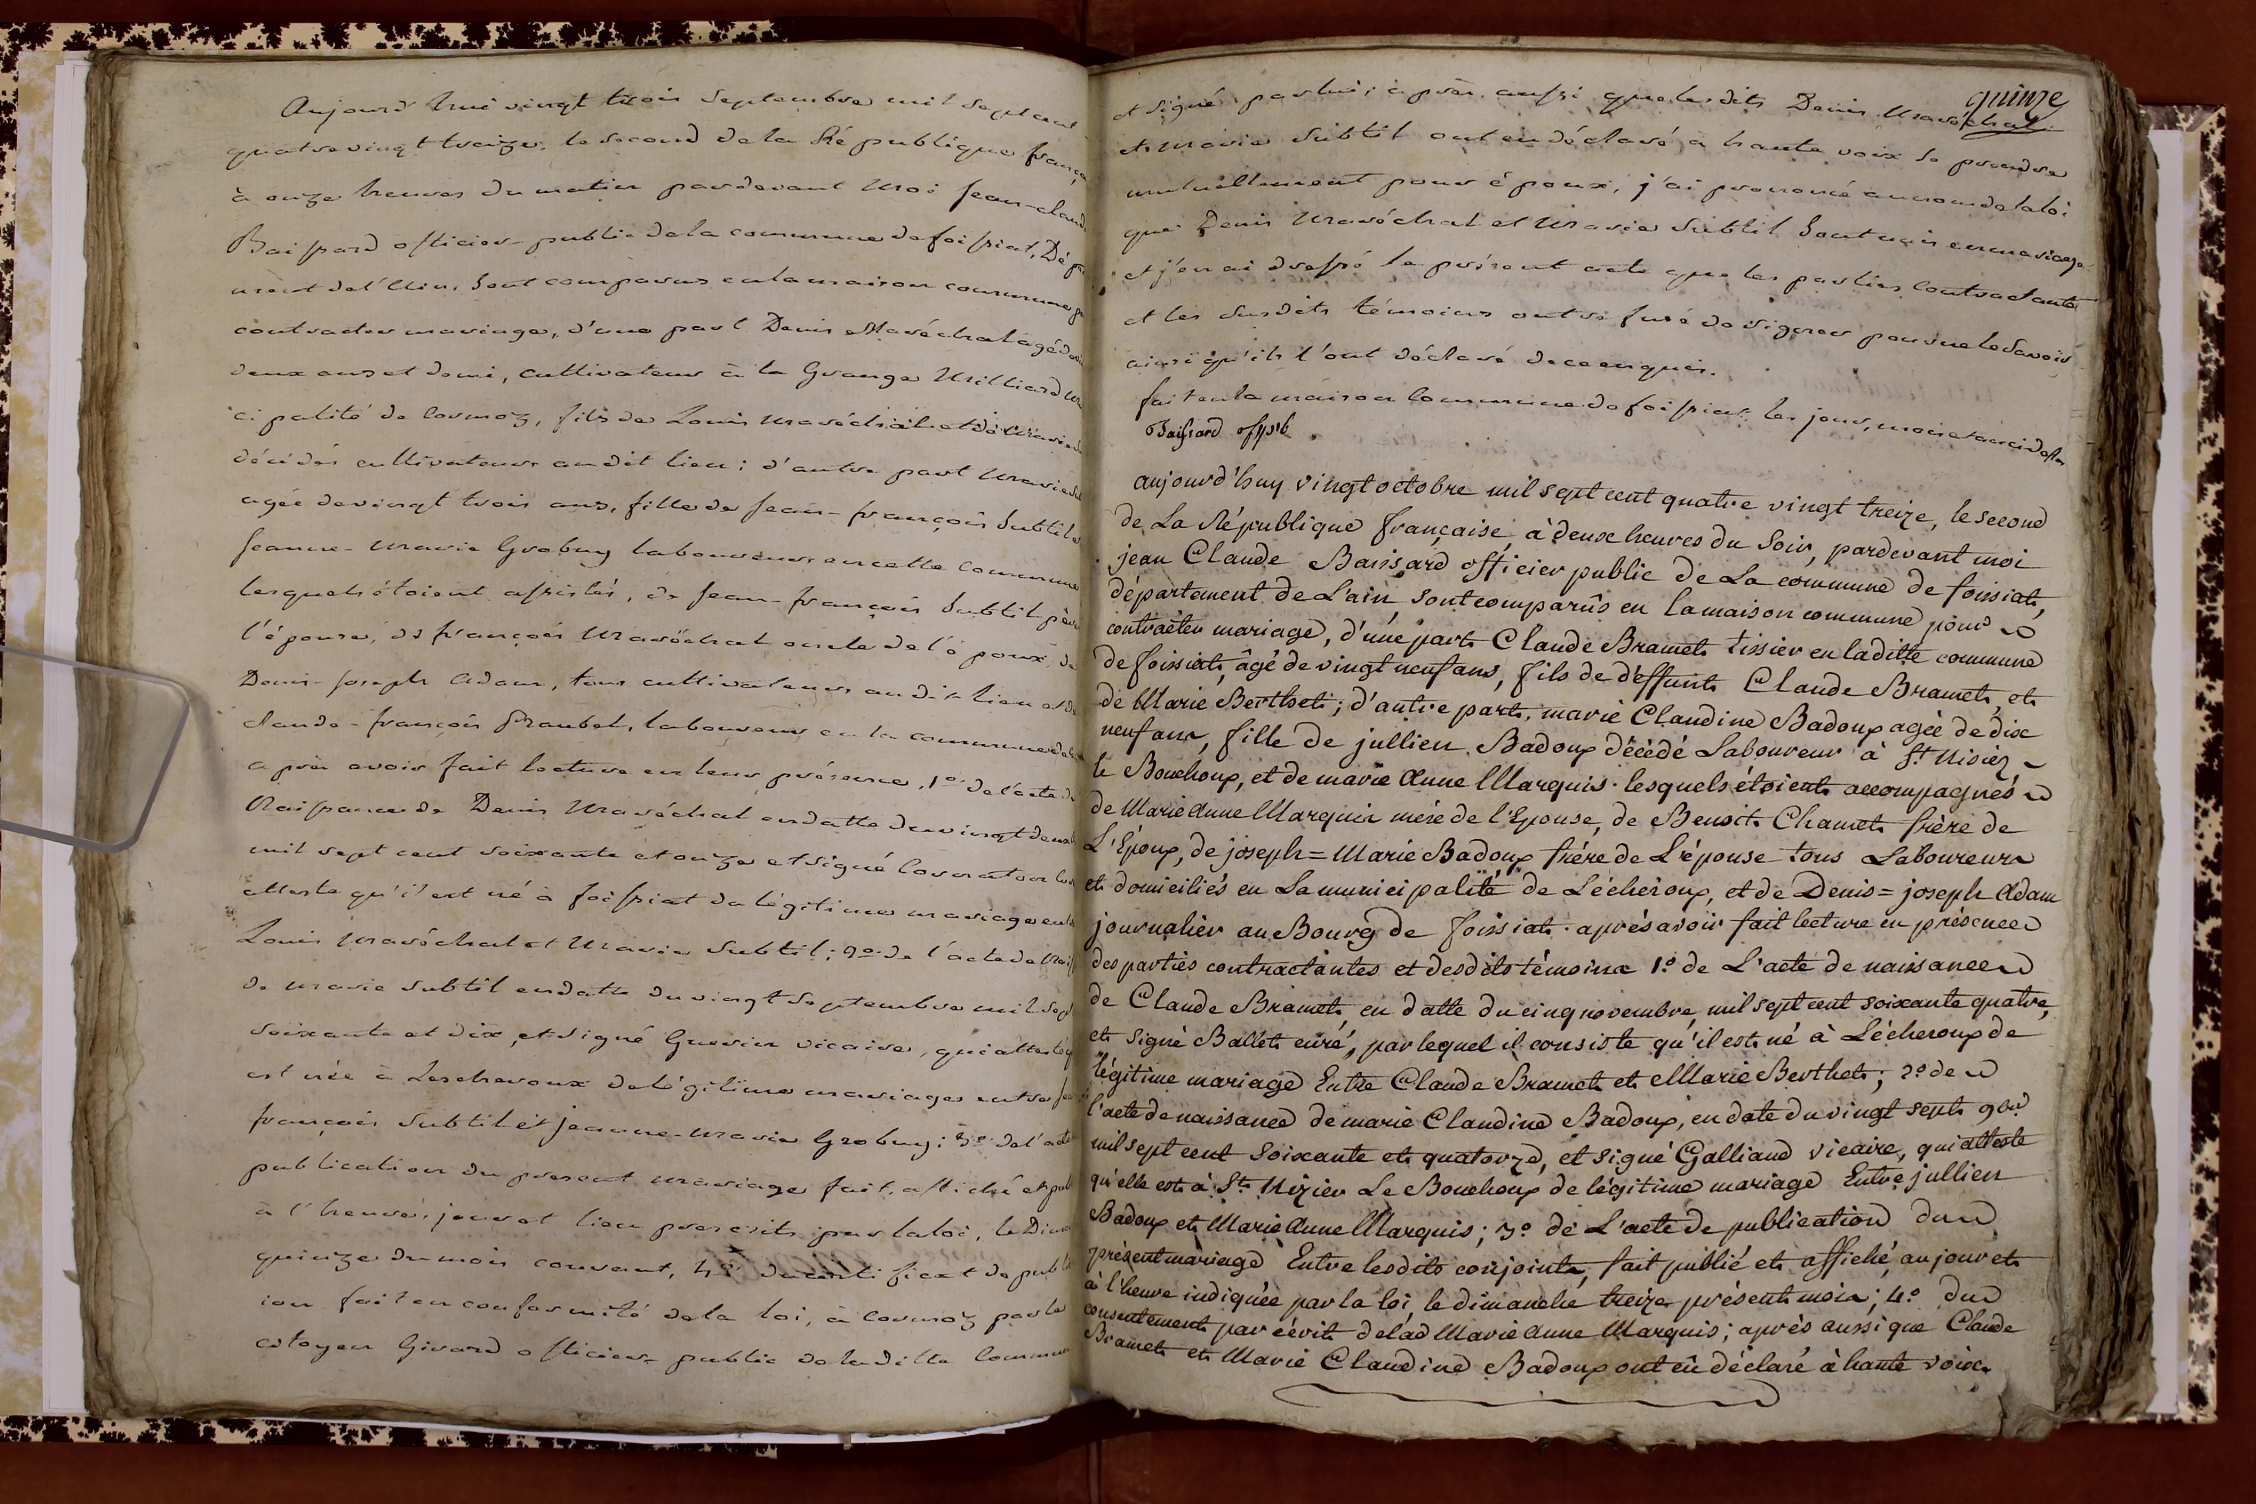 Aujourd'hui vingt trois Septembre mil sept cent
quatre vingt treize, le second de la République franç
à onze heures du matin pardevant moi Jean-claud
Baissard officier public de la commune de foissiat, Dépar
ment de l'Ain, sont comparus en la maison commune p
contracter mariage, d'une part Denis Maréchal agé de
deux ans et demi, cultivateur à la Grange Milliard
cipalité de Cormoz, fils de Louis Maréchal et de Marie
décédés cultivateurs audit lieu; d'autre part Marie
agée de vingt trois ans, fille de Jean-françois Subtil
Jeanne-Marie Grobuy laboureurs en cette commune
lesquels étoient assistés, de Jean-françois Subtil père
l'épouse, de françois Maréchal oncle de l'époux, de
Denis-Joseph Adam, tous cultivateurs audit lieu et de
claude-françois laboureur en la commune de
après avoir fait lecture en leur présence, 1º de l'acte de
Naissance de Denis Maréchal en datte du vingt
mil sept cent soixante et onze et signé
atteste qu'il est né à foissiat de légitime mariage ent
Louis Maréchal et Marie Subtil; 2º de l'acte de Naiss
de Marie Subtil en datte du vingt Septembre mil sept
soixante et dix, et signé Guerin vicaire, qui atteste q
est née à Lescheroux de légitime mariage entre Je
françois Subtil et Jeanne-Marie Grobuy; 3º de l'acte
publication du present mariage fait, affiché et publ
à l'heure, jour et lieu prescrits par la loi, le Dim
quinze du mois courant, 4º du certificat de publi
ion fait en conformité de la loi, à Cormoz par le
citoyen Girard officier public de laditte Commun
quinze
et signé par lui; après aussi que lesdits Denis Maréchal
et Marie Subtil ont eu déclaré à haute voix se prendre
mutuellement pour époux, j'ai prononcé au nom de la loi
que Denis Maréchal et Marie Subtil sont unis en mariage
et j'en ai dressé le présent acte que les parties contractantes
et les susdits témoins ont refusé de signer pour ne le savoir
ainsi qu'ils l'ont déclaré de ce enquis.
fait en la maison Commune de foissiat les jour, mois et an ci dessus
Baissard off. pub
aujourd'huy vingt octobre mil sept cent quatre vingt treize, le second
de La République française, à deux heures du Soir, pardevant moi
jean Claude Baissard officier public de La commune de foissiat,
département de L'ain, sont comparûs en la maison commune pour
contracter mariage, d'une part Claude Bramet tissier en laditte commune
de foissiat, âgé de vingt neuf ans, fils de déffunt Claude Bramet, et
de Marie Berthet; d'autre part, marie Claudine Badoux agée de dix
neuf ans, fille de jullien Badoux décédé Laboureur à St. Nisiez
le Bouchoux, et de marie Anne Marquis. lesquels étoient accompagnés
de Marie Anne Marquis mére de l'Epouse, de Benoit Chamet frère de
L'Epoux, de joseph=Marie Badoux frére de L'épouse tous Laboureurs
et domiciliés en La municipalité de Lécheroux, et de Denis=joseph Adam
journalier au Bourg de foissiat. après avoir fait lecture en présence
des parties contractantes et desdits témoins 1º de L'acte de naissance
de Claude Bramet, en datte du cinq novembre, mil sept cent soixante quatre,
et signé Ballet curé, par lequel il consiste qu'il est né à Lécheroux de
légitime mariage Entre Claude Bramet et Marie Berthet; 2º de
l'acte de naissance de marie Claudine Badoux, en date du vingt sept 9bre
mil sept cent soixante et quatorze, et signé Galliand vicaire, qui atteste
qu'elle est à St. Nizier Le Bouchoux de légitime mariage Entre jullien
Badoux et Marie Anne Marquis; 3º de L'acte de publication du
présent mariage Entre lesdits conjoints, fait publié et affiché, au jour et
à l'heure indiquée par la loi, le dimanche treize présent mois; 4º du
consentement par écrit de lad Marie Anne Marquis; après aussi que Claude
Bramet et Marie Claudine Badoux ont eû déclaré à haute voix